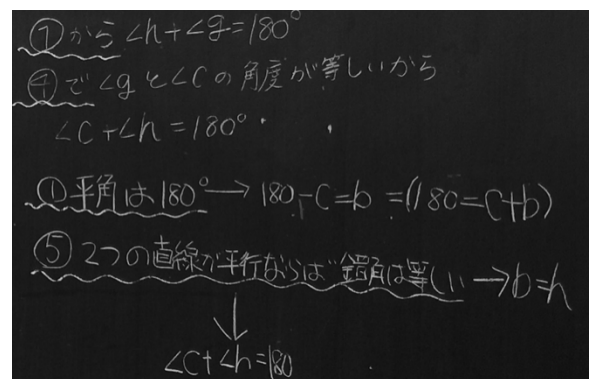 ⑦から∠h+∠g=180°
④で∠gと∠Cの角度が等しいから
∠C+∠h=180°
①平角は180°→180-C=b =(180=C+b)
⑤2つの直線が平行ならば錯角は等しい→b=h
↓
∠C+∠h=180